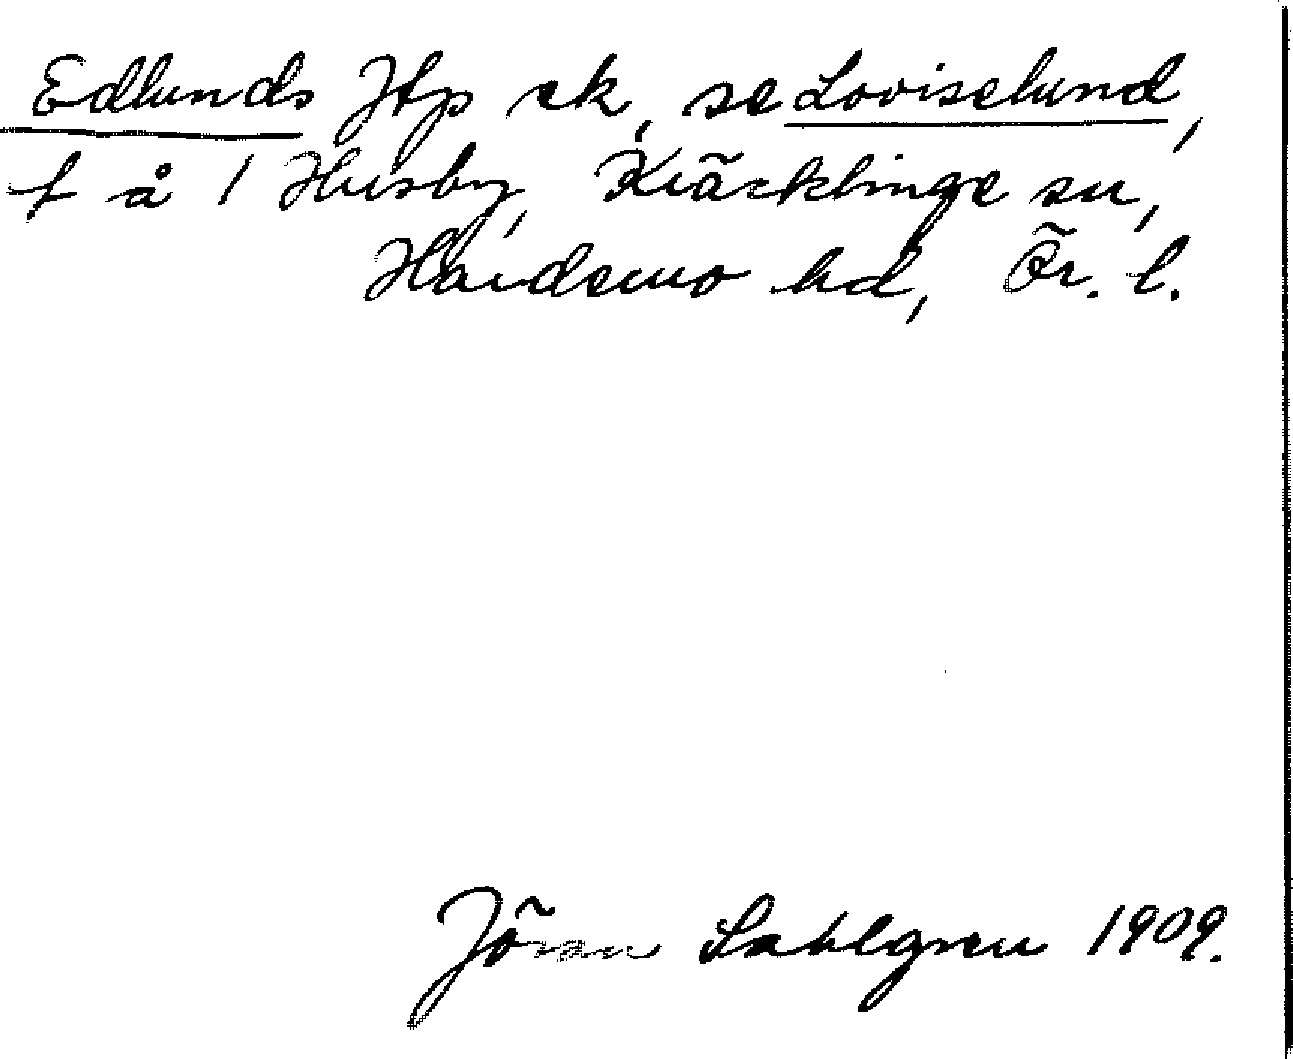 Edlunds Jtp ek, se Loviselund,
t å 1 Husby, Kräcklinge sn,
Hardemo hd, Ör. l.
Jöran Sahlgren 1909.